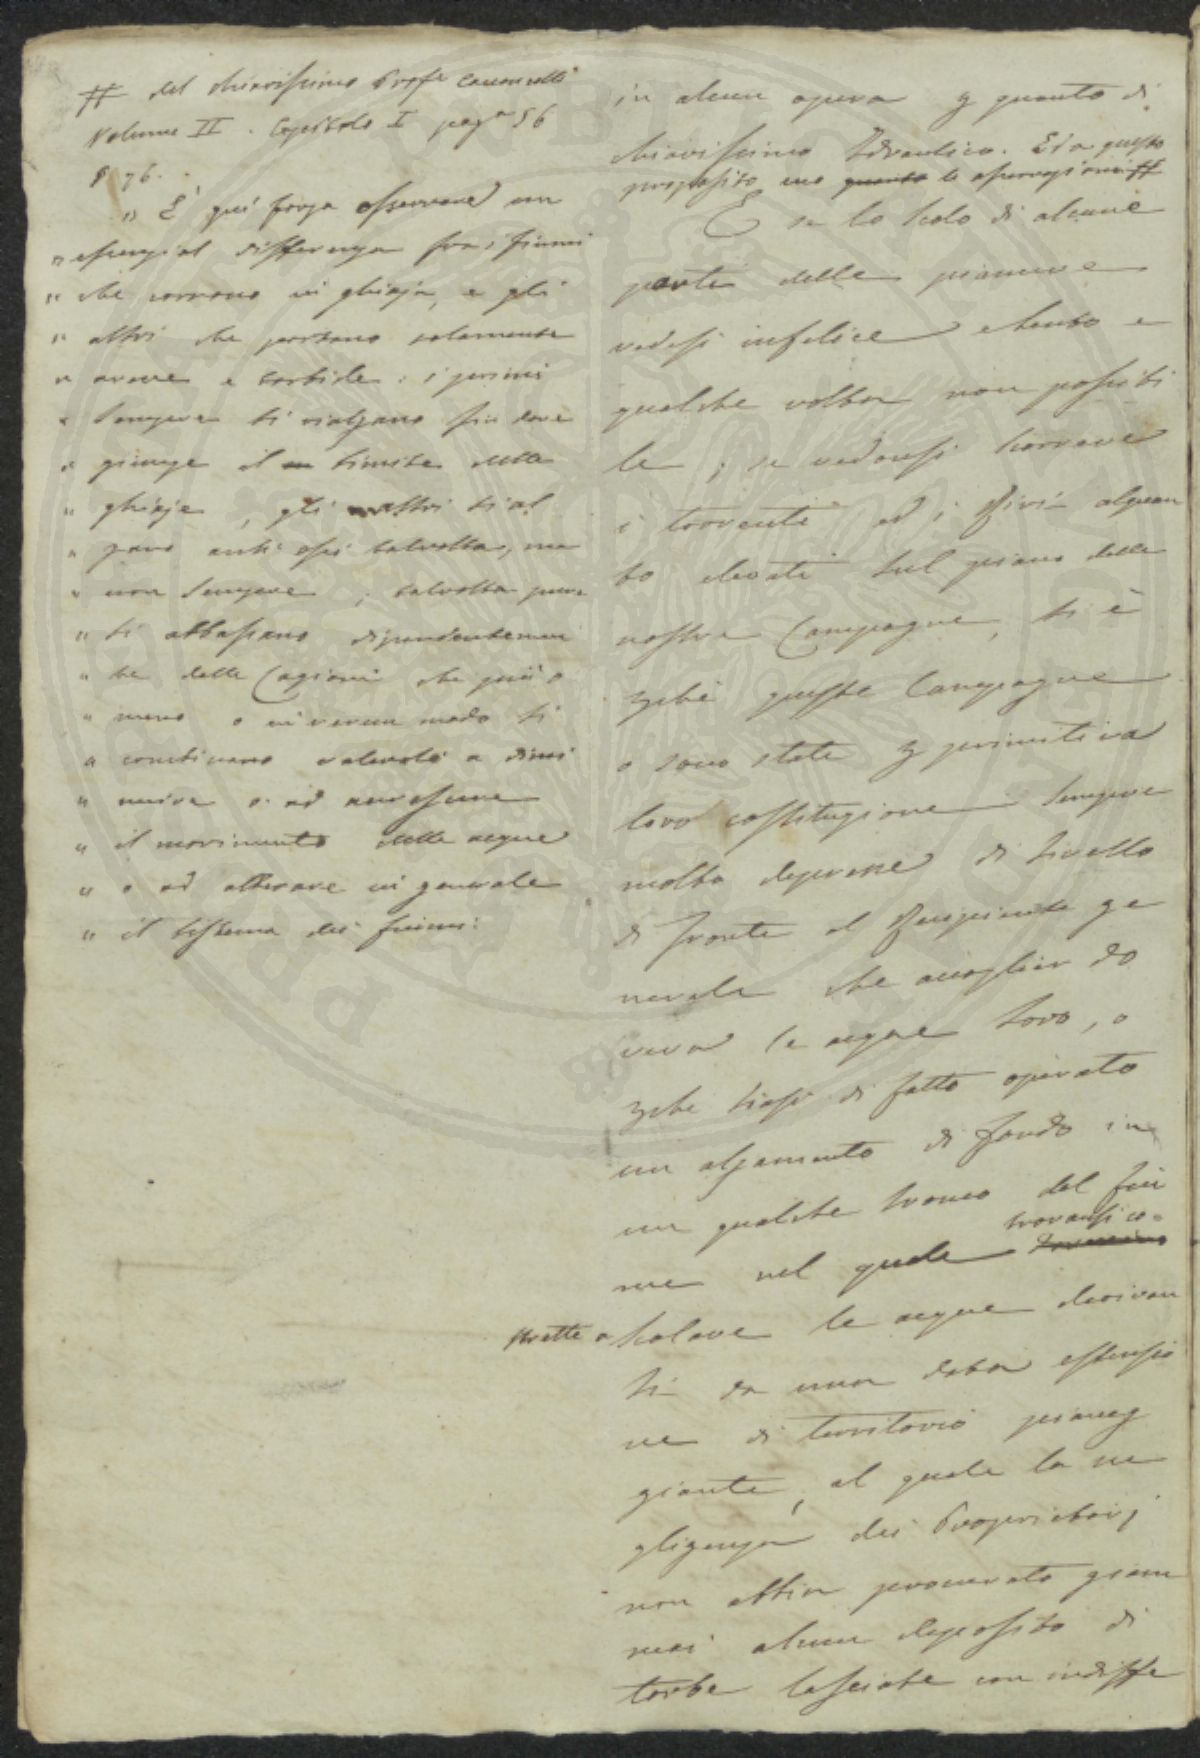 # del chiarissimo Profe
Volume II. Capitolo I pag.a 56
§ 76.
" È qui forza osservare un
" essenzial differenza fra i fiumi
" che corrono in ghiaja, e gli
" altri che portano solamente
" arene e torbide: i primi
" sempre si rialzano fin dove
" giunge il limite delle
" ghiaje, gli altri si al
" zano anch'essi talvolta, ma
" non sempre; talvolta pure
" si abbassano dipendentemen
" te dalle Cagioni che più o
" meno o in verun modo si
" combinano valevoli a dimi
" nuire o ad accrescere
" il movimento delle acque
" o ad alterare in generale
" il sistema dei fiumi:
in alcun opera p quanto di
chiarissimo Idraulico. Ed a questo
proposito ecco quanto le espressioni #
E se lo scolo di alcune
parti delle pianure
vedesi infelice stento e
qualche volta non possibi
le; se vedonsi correre
i torrenti ed i Rivi alquan
to elevati sul piano delle
nostre Campagne, si è
pchè queste Campagne
o sono state p primitiva
loro costituzione sempre
molto depresse di livello
di fronte al Recipiente ge
nerale che accoglier do
veva le acque loro, o
pchè siasi di fatto operato
un alzamento di fondo in
un qualche tronco del fiu
me nel quale trovansi co=
strette a scolare le acque derivan
ti da una data estensio
ne di territorio pianeg
giante, al quale la ne
gligenza dei Proprietarj
non abbia procurato giam
mai alcun deposito di
torbe lasciate con indiffe